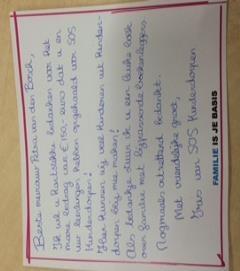 Beste mevrouw Petra van den Bosch,
Ik wil u hartelijk bedanken voor het
mooie bedrag van € 150,- euro dat u en
uw leerlingen hebben opgehaald voor SOS
Kinderdorpen!
Hier kunnen wij veel kinderen uit kinder-
dorpen blij mee maken!
Als bedankje stuur ik u een leuke boek
over families met bijpassende boekenleggers
Nogmaals ontzettend bedankt.
Met vriendelijke groet,
van SOS Kinderdorpen
FAMILIE IS JE BASIS